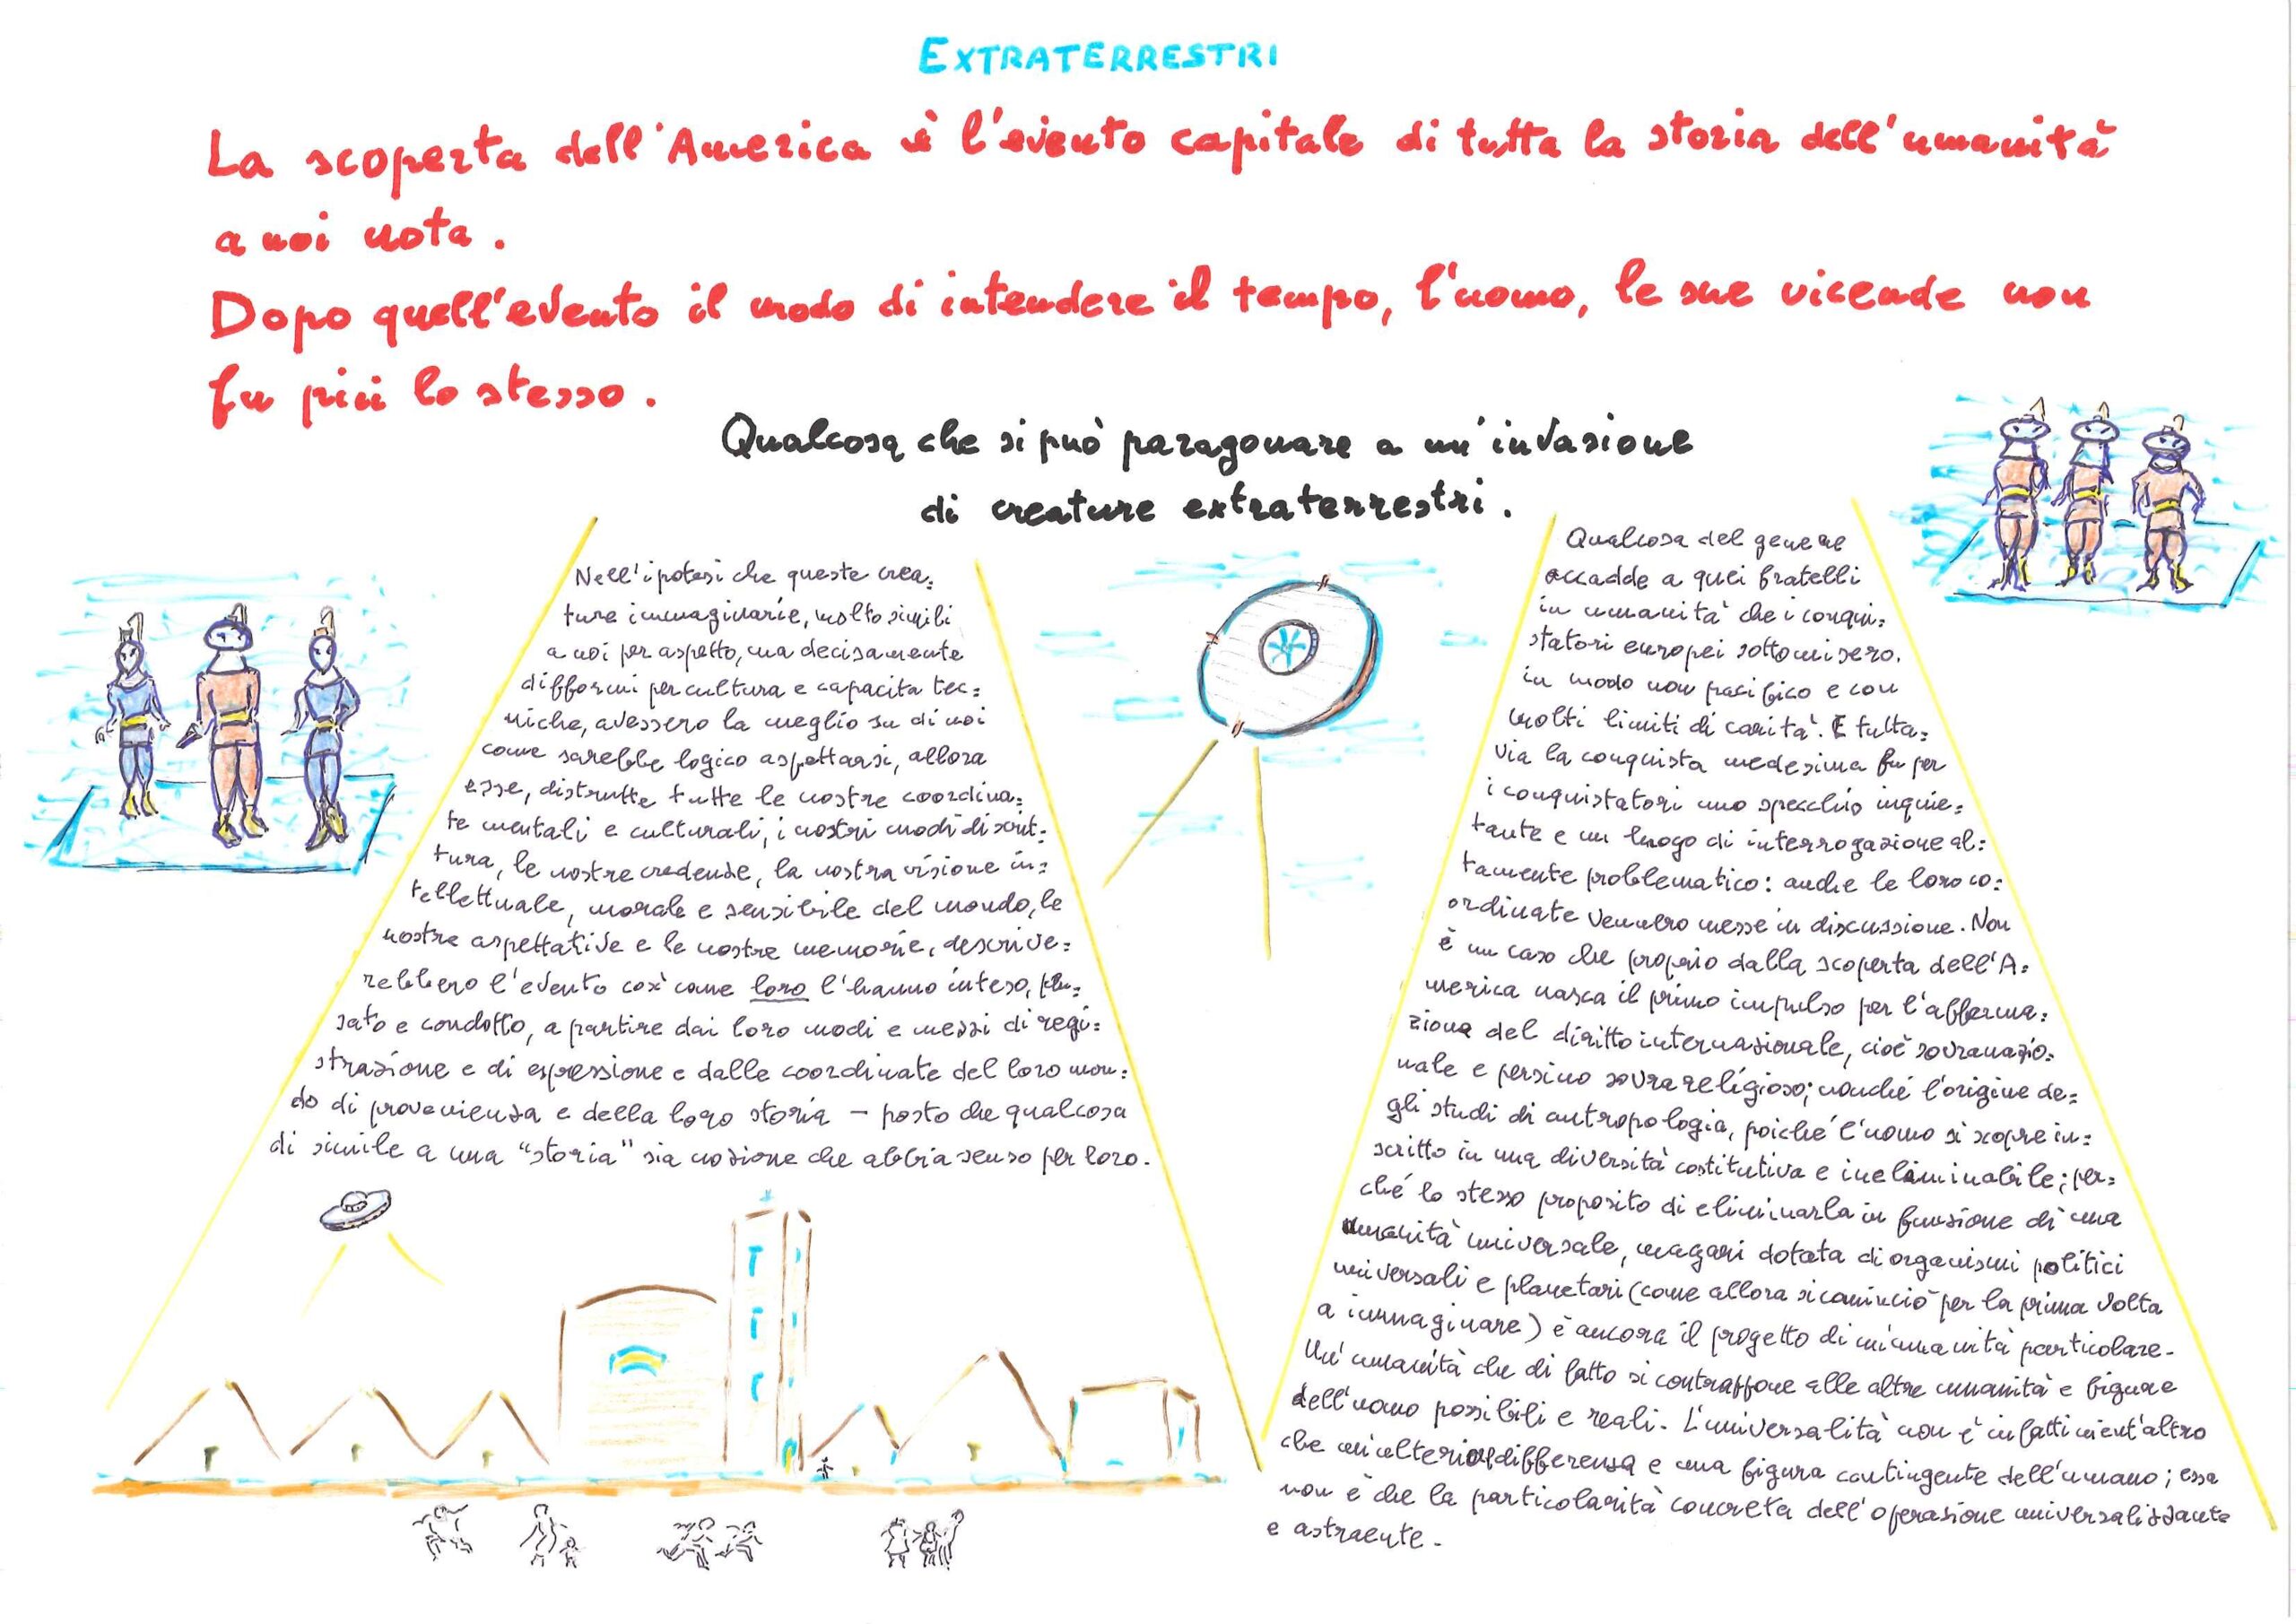 EXTRATERRESTRI
La scoperta dell'America è l'evento capitale di tutta la storia dell'umanità
a noi nota.
Dopo quell'evento il modo di intendere il tempo, l'uomo, le sue vicende non
fu più lo stesso.
Qualcosa che si può paragonare a un'invasione
di creature extraterrestri.
Nell'ipotesi che queste crea=
ture immaginarie, molto simili
a noi per aspetto, ma decisamente
difformi per cultura e capacità tec=
niche, avessero la meglio su di noi
come sarebbe logico aspettarsi, allora
esse, distrutte tutte le nostre coordina=
te mentali e culturali, i nostri modi di scrit=
tura, le nostre credenze, la nostra visione in=
tellettuale, morale e sensibile del mondo, le
nostre aspettative e le nostre memorie, descrive=
rebbero l'evento così come loro l'hanno inteso, pen=
sato e condotto, a partire dai loro modi e mezzi di regi=
strazione e di espressione e dalle coordinate del loro mon=
do di provenienza e della loro storia – posto che qualcosa
di simile a una "storia" sia nozione che abbia senso per loro.
Qualcosa del genere
accadde a quei fratelli
in umanità che i conqui=
statori europei sottomisero.
in modo non pacifico e con
molti limiti di carità. E tutta=
via la conquista medesima fu per
i conquistatori uno specchio inquie=
tante e un luogo di interrogazione al=
tamente problematico: anche le loro co=
ordinate vennero messe in discussione. Non
è un caso che proprio dalla scoperta dell'A=
merica nasca il primo impulso per l'afferma=
zione del diritto internazionale, cioè sovranazio=
nale e persino sovrareligioso; nonché l'origine de=
gli studi di antropologia, poiché l'uomo si scopre in=
scritto in una diversità costitutiva e ineliminabile; per=
ché lo stesso proposito di eliminarla in funzione di una
umanità universale, magari dotata di organismi politici
universali e planetari (come allora si cominciò per la prima volta
a immaginare) è ancora il progetto di un'umanità particolare.
Un'umanità che di fatto si contrappone alle altre umanità e figure
dell'uomo possibili e reali. L'universalità non è infatti nient'altro
che un'ulteriore differenza e una figura contingente dell'umano; essa
non è che la particolarità concreta dell'operazione universalizzante
e astraente.